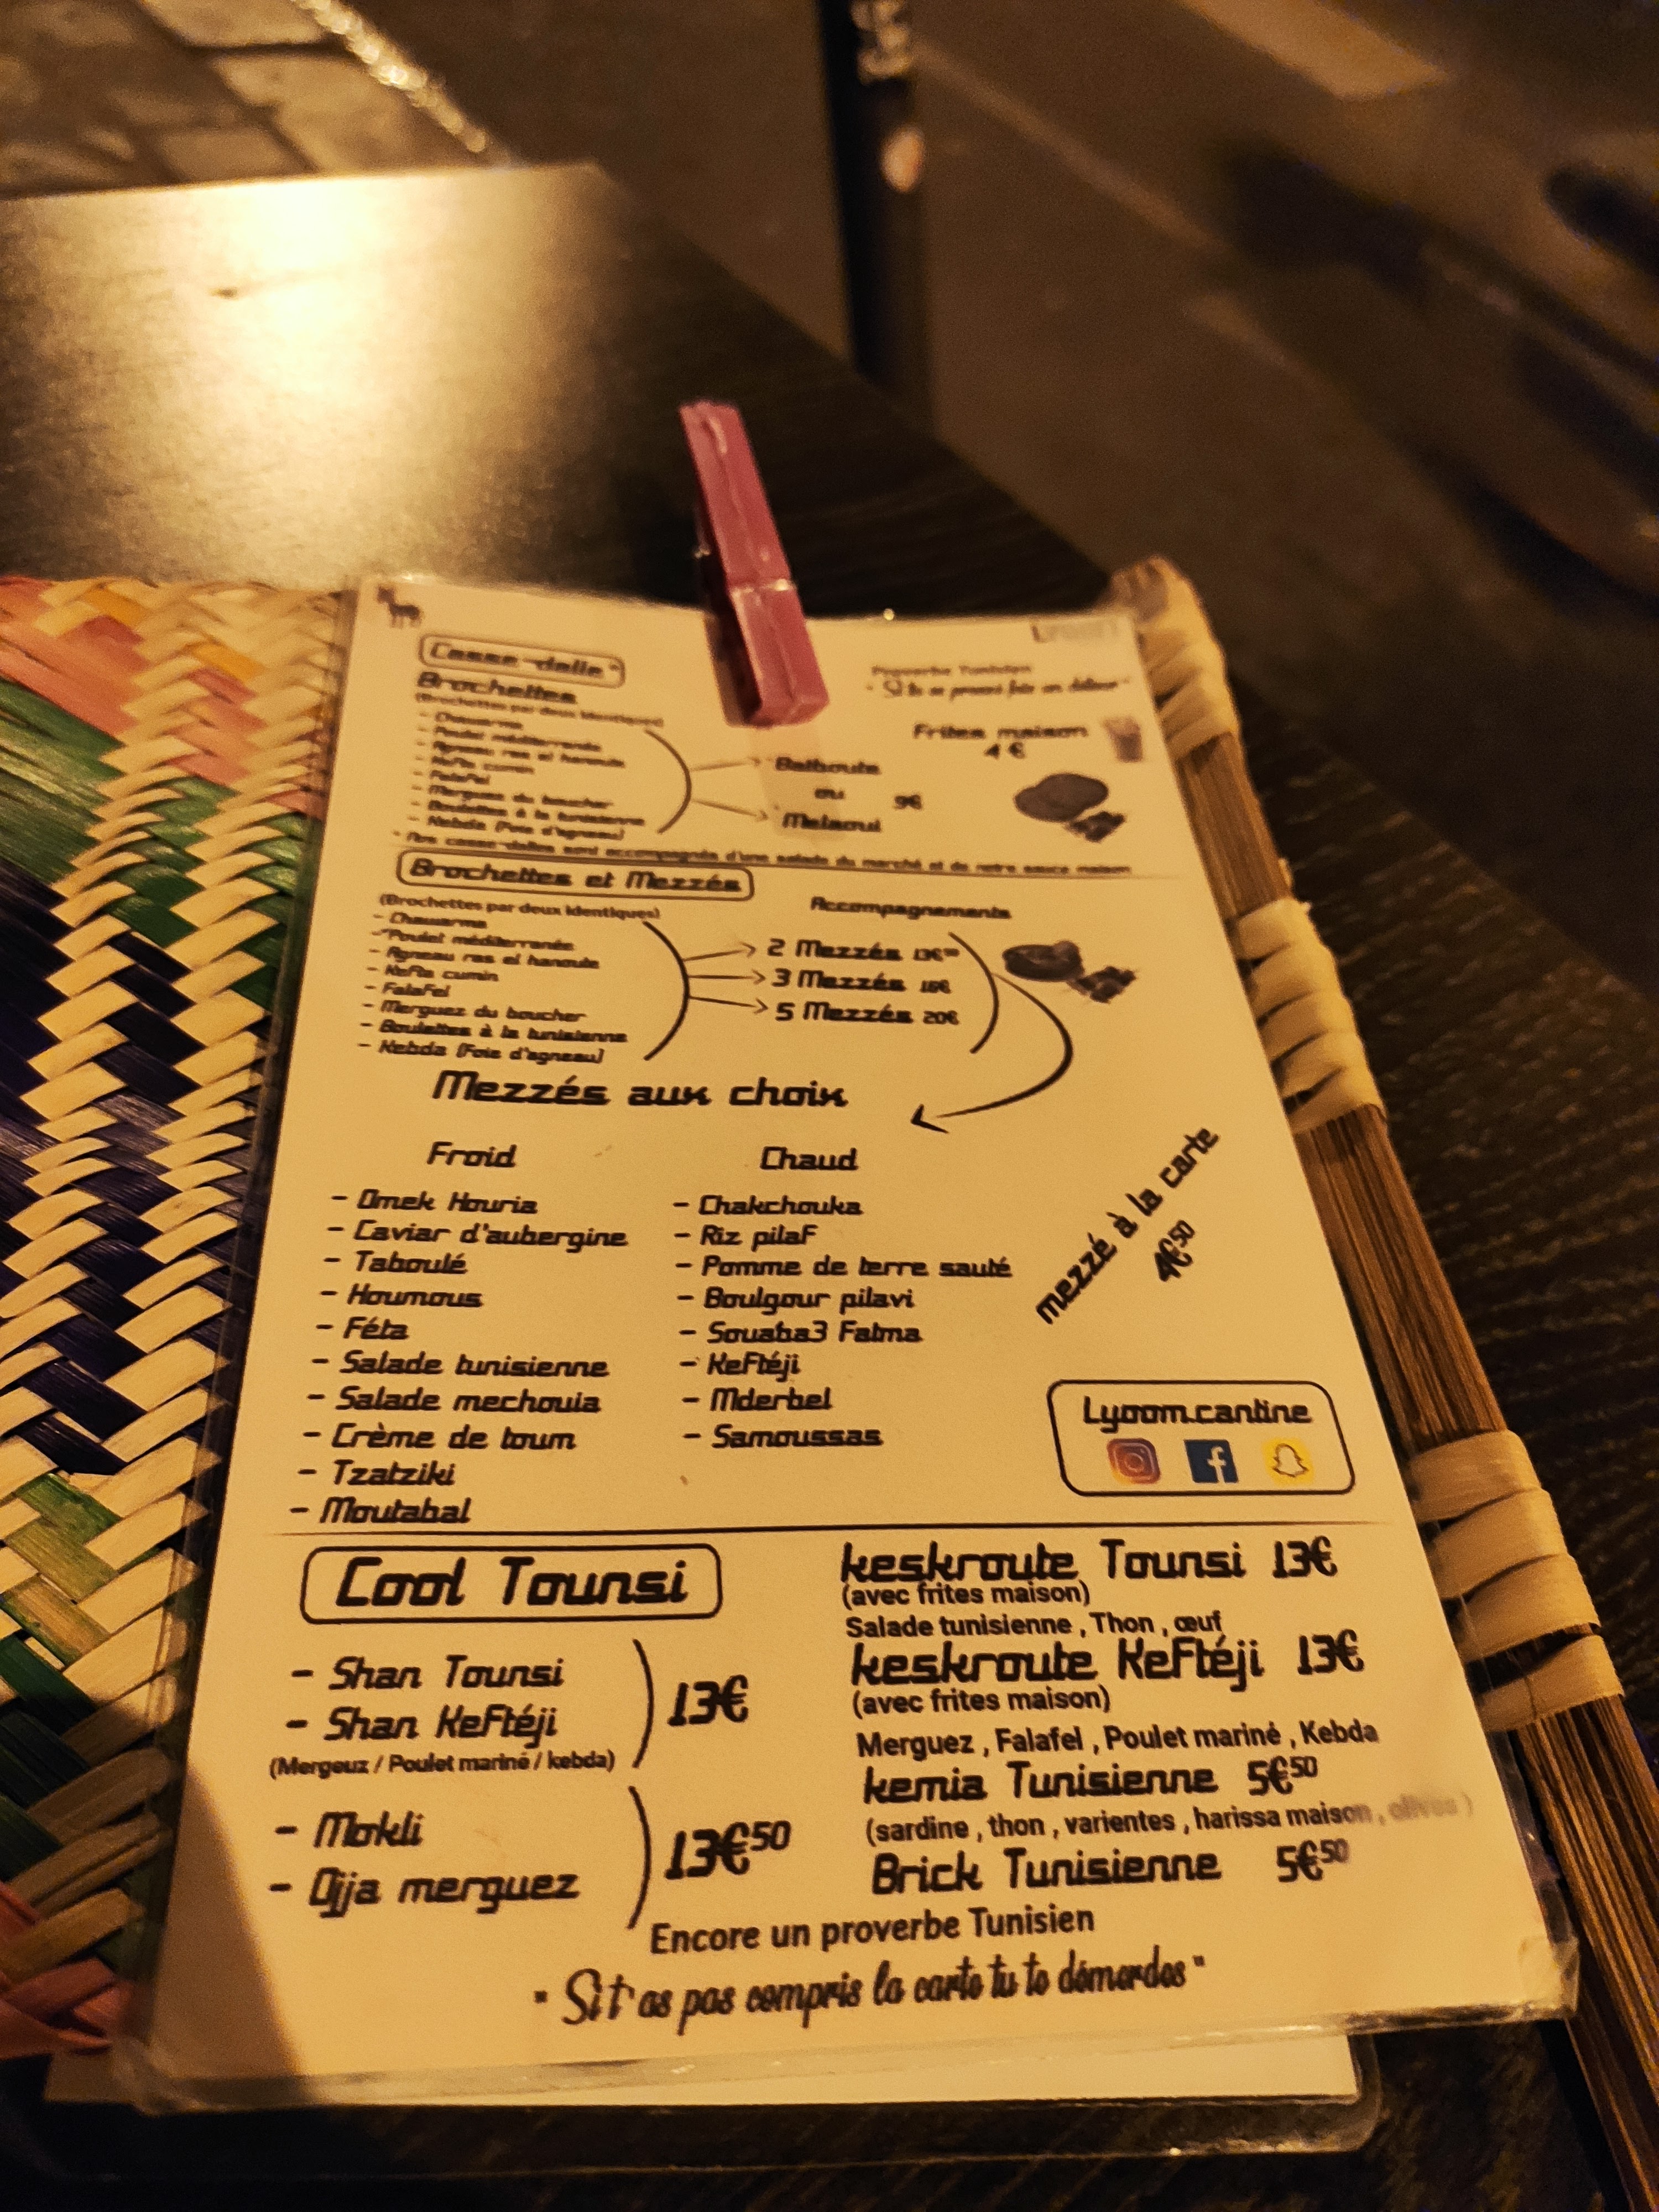 Casse-dalle"
Brochettes
(Brochettes par deux identiques)
- Chawarma
- Poulet méditerranée
- Agneau ras el hanoute
- Kefta cumin
- Falafel
- Merguez du boucher
- Boulettes à la tunisienne
- Kebda (Foie d'agneau)
Batboute
ou
Melaoui
9€
Proverbe Tunisien
Frites maison
4 €
casse-dalles sont accompagnés d'une salade du marché et de notre sauce maison
Brochettes et Mezzés
(Brochettes par deux identiques)
- Chawarma
- Poulet méditerranée
- Agneau ras el hanoute
- Kefta cumin
- Falafel
- Merguez du boucher
- Boulettes à la tunisienne
- Kebda (Foie d'agneau)
Accompagnements
2 Mezzés 13€⁵⁰
3 Mezzés
5 Mezzés 20€
Mezzés aux choix
Froid
- Omek Houria
- Caviar d'aubergine
- Taboulé
- Houmous
- Féta
- Salade tunisienne
- Salade mechouia
- Crème de toum
- Tzatziki
- Moutabal
Chaud
- Chakchouka
- Riz pilaf
- Pomme de terre sauté
- Boulgour pilavi
- Souaba3 Fatma
- Keftéji
- Mderbel
- Samoussas
mezzé à la carte
4€⁵⁰
Lyoom.cantine
Cool Tounsi
- Shan Tounsi
- Shan Keftéji
(Mergeuz / Poulet mariné / kebda)
13€
- Mokli
- Ojja merguez
13€⁵⁰
keskroute Tounsi 13€
(avec frites maison)
Salade tunisienne , Thon , œuf
keskroute Keftéji 13€
(avec frites maison)
Merguez , Falafel , Poulet mariné , Kebda
kemia Tunisienne 5€⁵⁰
(sardine , thon , varientes , harissa maison , olives )
Brick Tunisienne 5€⁵⁰
Encore un proverbe Tunisien
" Si t'as pas compris la carte tu te démerdes "